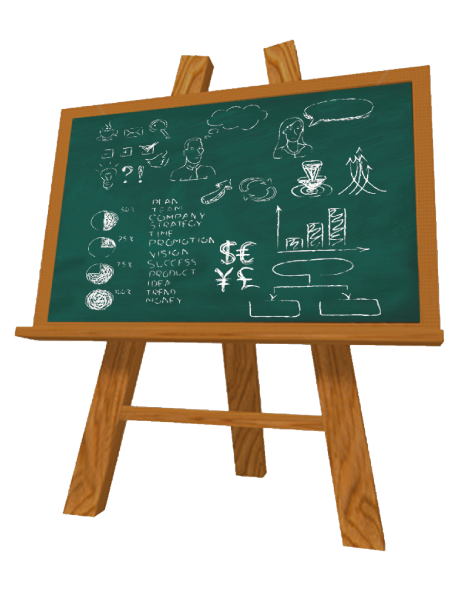 ?!
50%
25%
75%
100%
PLAN
TEAM
COMPANY
STRATEGY
TIME
PROMOTION
VISION
SUCCESS
PRODUCT
IDEA
TREND
MONEY
$€
¥£